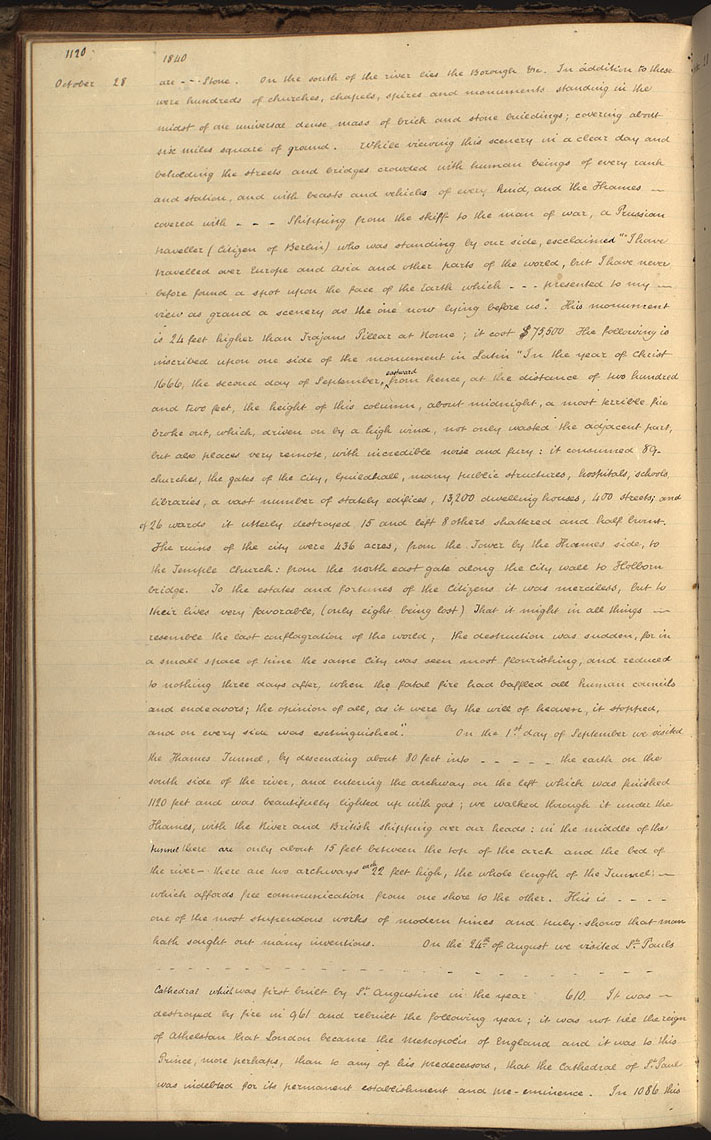 1120
1840
October 28
an - - - Stone. On the south of the river lies the Borough &c. In addition to these
were hundreds of churches, chapels, spires and monuments standing in the
midst of one universal dense mass of brick and stone buildings; covering about
six miles square of ground. While viewing this scenery in a clear day and
beholding the streets and bridges crowded with human beings of every rank
and station, and with beasts and vehicles of every kind, and the Thames —
covered with - - - Shipping from the skiff to the man of war, a Prussian
traveller (Citizen of Berlin) who was standing by our side, exclaimed "I have
travelled over Europe and Asia and other parts of the world, but I have never
before found a spot upon the face of the Earth which - - - presented to my —
view as grand a scenery as the one now lying before us". This monument
is 24 feet higher than Trajans Pillar at Rome; it cost $75,500 The following is
inscribed upon one side of the monument in Latin "In the year of Christ
1666, the second day of September, eastward from hence, at the distance of two hundred
and two feet, the height of this column, about midnight, a most terrible fire
broke out, which, driven on by a high wind, not only wasted the adjacent part,
but also places very remote, with incredible noise and fury: it consumed 89-
churches, the gates of the City, Guildhall, many public structures, hospitals, schools
libraries, a vast number of stately edifices, 13,200 dwelling houses, 400 streets; and
of 26 wards it utterly destroyed 15 and left 8 others shattered and half burnt.
The ruins of the city were 436 acres, from the Tower by the Thames side, to
the Temple Church: from the north east gate along the City wall to Holborn
bridge. To the estates and fortunes of the Citizens it was merciless, but to
their lives very favorable, (only eight being lost) That it might in all things —
resemble the last conflagration of the world, the destruction was sudden, for in
a small space of time the same City was seen most flourishing, and reduced
to nothing three days after, when the fatal fire had baffled all human councils
and endeavors; the opinion of all, as it were by the will of heaven, it stopped,
and on every side was extinguished". On the 1st day of September we visited
the Thames Tunnel, by descending about 80 feet into - - - - - the earth on the
south side of the river, and entering the archway on the left which was finished
1120 feet and was beautifully lighted up with gas; we walked through it under the
Thames, with the River and British shipping over our heads: in the middle of the
tunnel there are only about 15 feet between the top of the arch and the bed of
the river — there are two archways each 22 feet high, the whole length of the Tunnel; —
which affords free communication from one shore to the other. This is - - - -
one of the most stupendous works of modern times and truly shows that man
hath sought out many inventions. On the 24th of August we visited St Pauls
- - - - - - - - - - - - - - - - - - -
Cathedral which was first built by St Augustine in the year 610. It was —
destroyed by fire in 961 and rebuilt the following year; it was not till the reign
of Athelstan that London became the Metropolis of England and it was to this
Prince, more perhaps, than to any of his predecessors, that the Cathedral of St Paul
was indebted for its permanent establishment and pre-eminence. In 1086 this